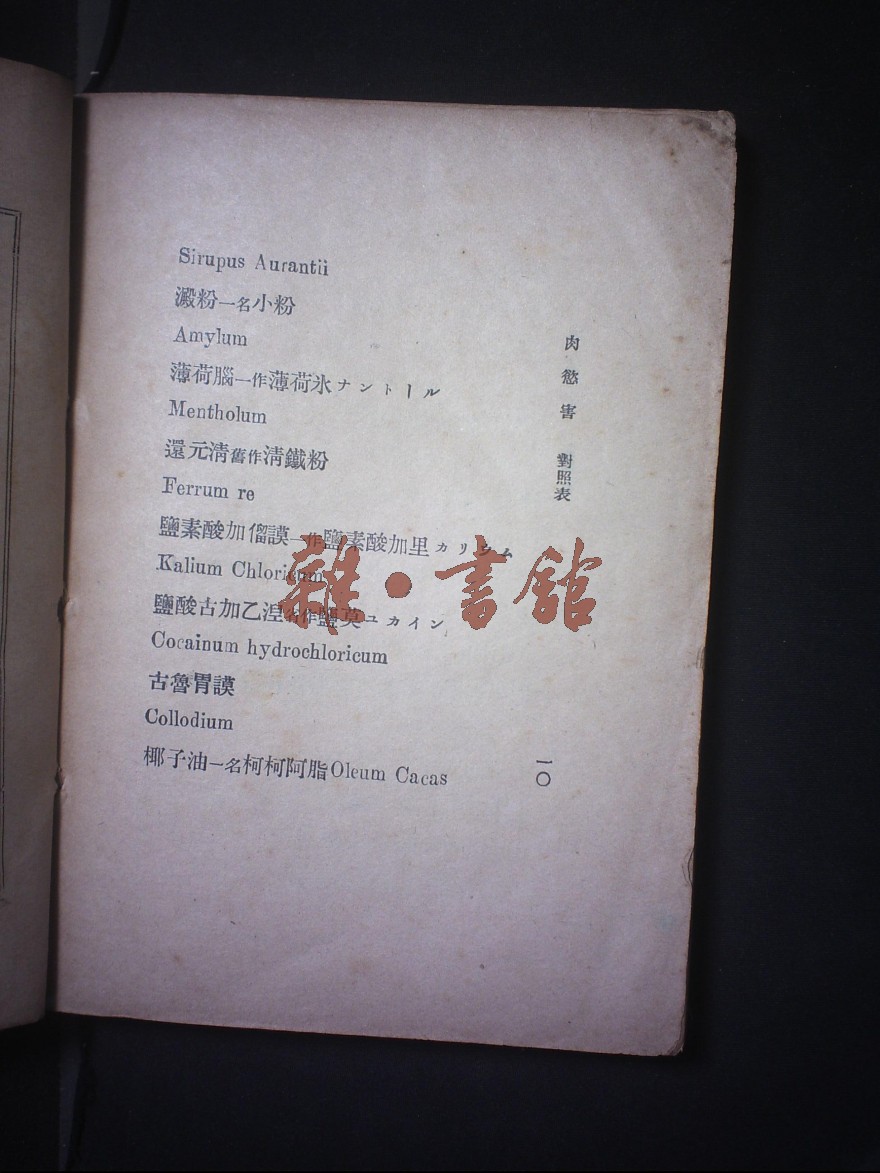 Sirupus Aurantii
澱粉一名小粉
Amylum
薄荷腦一作薄荷氷ナントール
Mentholum
還元淸舊作淸鐵粉
Ferrum re
鹽素酸加倻謨一作鹽素酸加里カリウム
Kalium Chloricum
鹽酸古加乙湼名作鹽莫ユカイン
Cocainum hydrochloricum
古魯胃謨
Collodium
椰子油一名柯柯阿脂Oleum Cacas
肉慾害 對照表
一〇
雜·書館